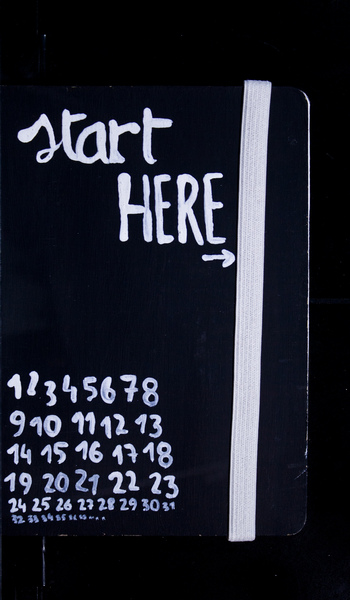 start
HERE
→
1 2 3 4 5 6 7 8
9 10 11 12 13
14 15 16 17 18
19 20 21 22 23
24 25 26 27 28 29 30 31
32 33 34 35